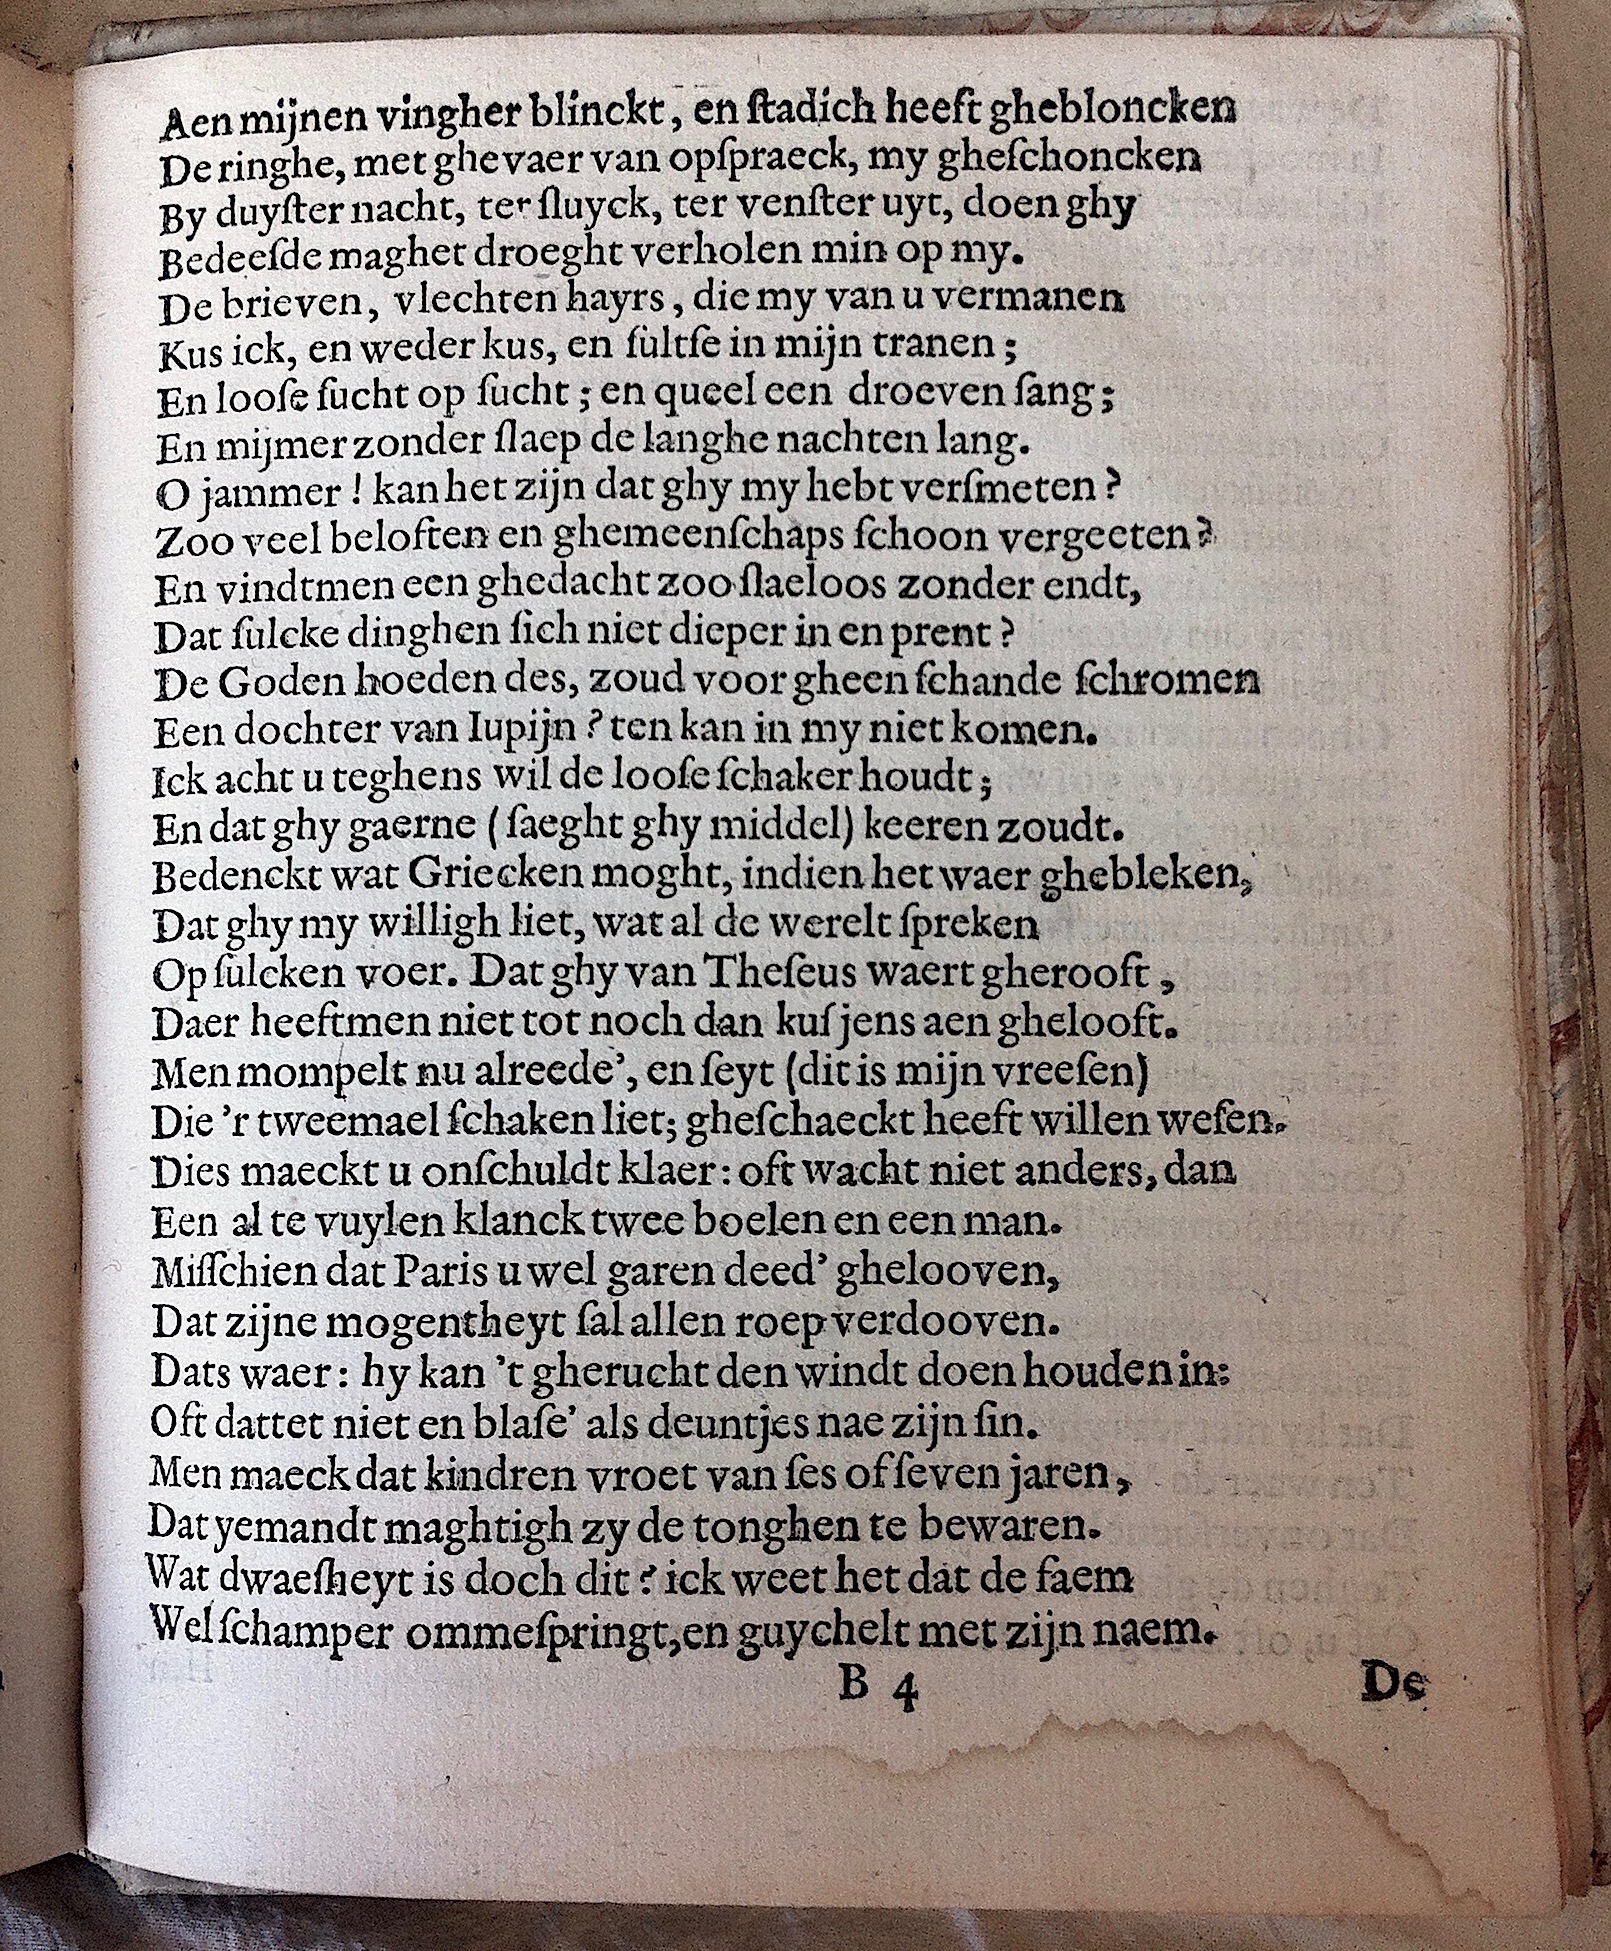 Aen mijnen vingher blinckt, en ſtadich heeft ghebloncken
De ringhe, met ghevaer van opſpraeck, my gheſchoncken
By duyſter nacht, ter ſluyck, ter venſter uyt, doen ghy
Bedeeſde maghet droeght verholen min op my.
De brieven, vlechten hayrs, die my van u vermanen
Kus ick, en weder kus, en ſultſe in mijn tranen;
En looſe ſucht op ſucht; en queel een droeven ſang;
En mijmer zonder ſlaep de langhe nachten lang.
O jammer! kan het zijn dat ghy my hebt verſmeten?
Zoo veel beloften en ghemeenſchaps ſchoon vergeeten?
En vindtmen een ghedacht zoo ſlaeloos zonder endt,
Dat ſulcke dinghen ſich niet dieper in en prent?
De Goden hoeden des, zoud voor gheen ſchande ſchromen
Een dochter van Iupijn? ten kan in my niet komen.
Ick acht u teghens wil de looſe ſchaker houdt;
En dat ghy gaerne (ſaeght ghy middel) keeren zoudt.
Bedenckt wat Griecken moght, indien het waer ghebleken,
Dat ghy my willigh liet, wat al de werelt ſpreken
Op ſulcken voer. Dat ghy van Theſeus waert gherooft,
Daer heeftmen niet tot noch dan kuſjens aen ghelooft.
Men mompelt nu alreede', en ſeyt (dit is mijn vreeſen)
Die 'r tweemael ſchaken liet; gheſchaeckt heeft willen weſen.
Dies maeckt u onſchuldt klaer: oft wacht niet anders, dan
Een al te vuylen klanck twee boelen en een man.
Miſſchien dat Paris u wel garen deed' ghelooven,
Dat zijne mogentheyt ſal allen roep verdooven.
Dats waer: hy kan 't gherucht den windt doen houden in:
Oft dattet niet en blaſe' als deuntjes nae zijn ſin.
Men maeck dat kindren vroet van ſes of ſeven jaren,
Dat yemandt maghtigh zy de tonghen te bewaren.
Wat dwaeſheyt is doch dit? ick weet het dat de faem
Wel ſchamper ommeſpringt, en guychelt met zijn naem.
B 4 De